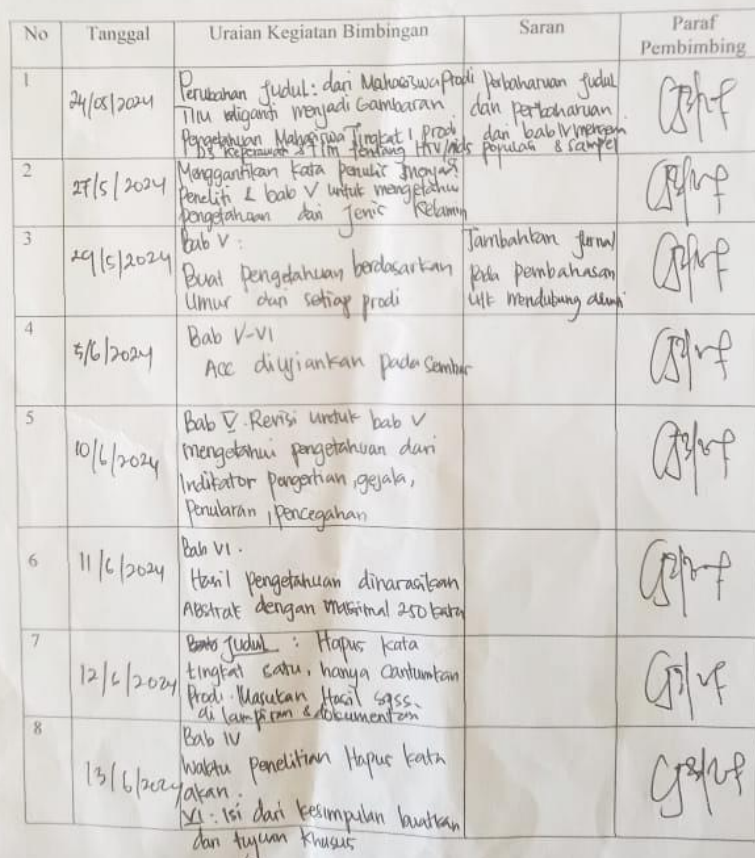 No Tanggal Uraian Kegiatan Bimbingan Saran Paraf Pembimbing
1
24/05/2024
Perubahan Judul: dari Mahasiswa Prodi
TLM diganti menjadi Gambaran
Pengetahuan Mahasiswa Tingkat 1 Prodi
D3 Keperawatan & TLM tentang HIV/Aids
Perbaharuan Judul
dan perbaharuan
dan bab IV mengenai
populasi & sampel
2
27/5/2024
Menggantikan kata penulis menjadi
Peneliti & bab V untuk mengetahui
pengetahuan dari Jenis Kelamin
3
29/5/2024
Bab V :
Buat pengetahuan berdasarkan
Umur dan setiap prodi
Tambahkan Jurnal
pada pembahasan
utk mendukung
4
5/6/2024
Bab V-VI
Acc diujiankan pada
5
10/6/2024
Bab V. Revisi untuk bab V
mengetahui pengetahuan dari
Indikator pengertian, gejala,
Penularan, pencegahan
6
11/6/2024
Bab VI.
Hasil pengetahuan dinarasikan
Abstrak dengan maksimal 250 kata
7
12/6/2024
Judul : Hapus kata
tingkat satu, hanya cantumkan
Prodi. Masukan Hasil
di lampiran & dokumentasi
8
13/6/2024
Bab IV
Waktu penelitian Hapus kata
akan.
VI : Isi dari kesimpulan buatkan
dari tujuan khusus